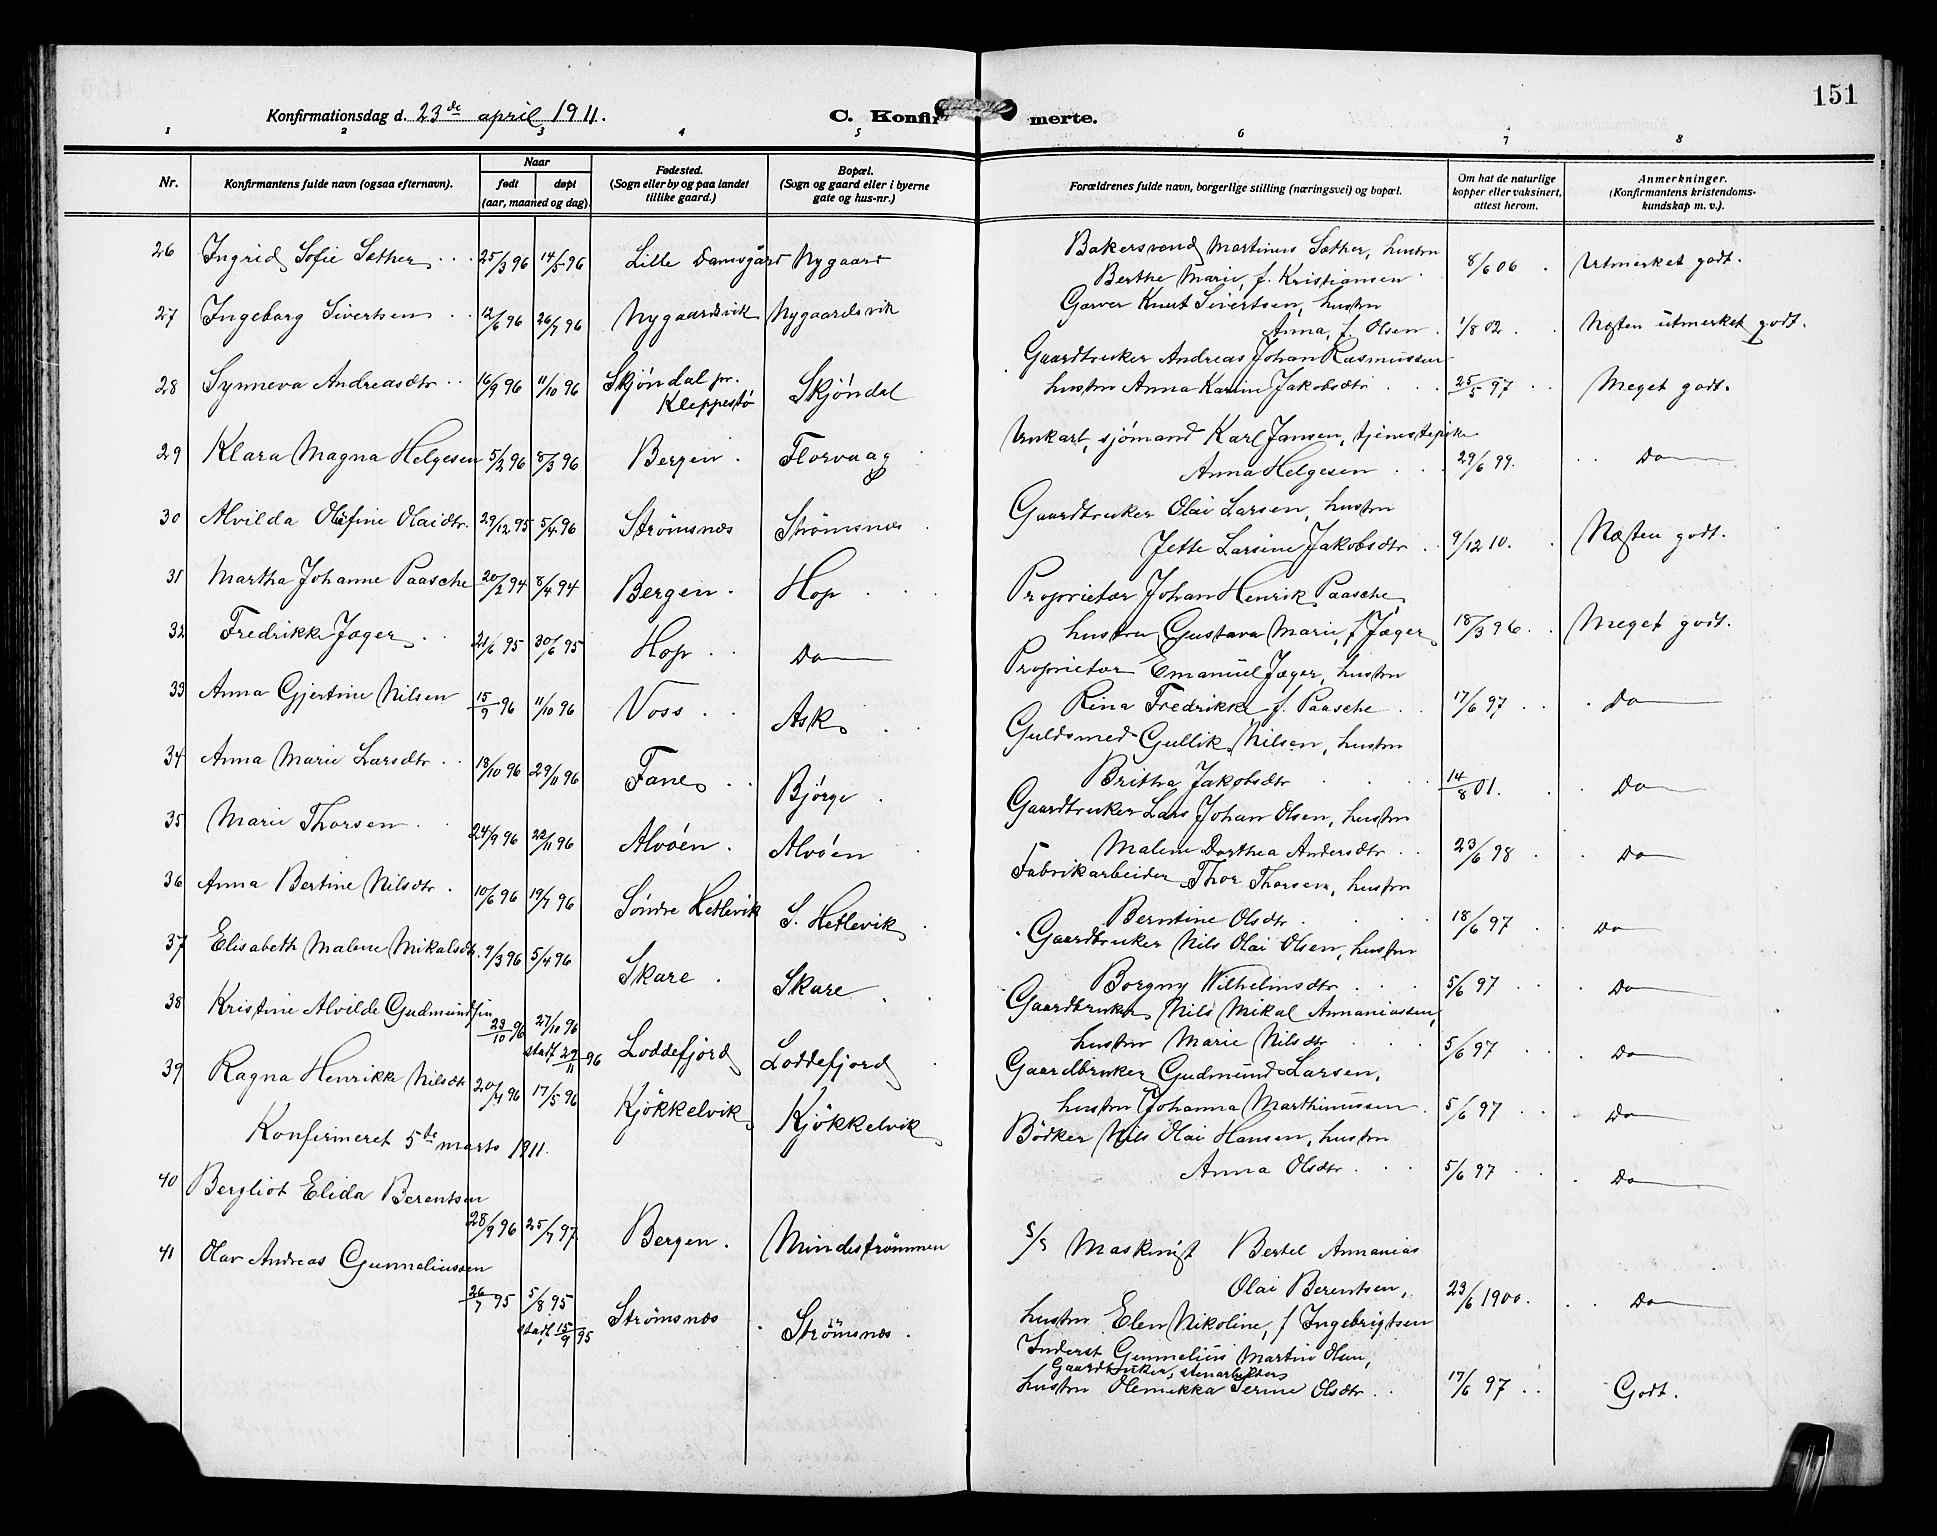 151
Konfirmationsdag d. 23de april 1911.
C. Konfirmerte.
1 2 3 4 5 6 7 8
Nr. Konfirmantens fulde navn (ogsaa efternavn). Naar født døpt (aar, maaned og dag). Fødested. (Sogn eller by og paa landet tillike gaard.) Bopæl. (Sogn og gaard eller i byerne gate og hus-nr.) Forældrenes fulde navn, borgerlige stilling (næringsvei) og bopæl. Om hat de naturlige kopper eller vaksinert, attest herom. Anmerkninger. (Konfirmantens kristendomskundskap m. v.).
26 Ingrid Sofie Sæther 25/3 96 14/5 96 Lille Damsgård Nygaard Bakersvend Martinus Sæther, hustru
Berthe Marie, f. Kristiansen 8/6 06 Utmerket godt.
27 Ingeborg Sivertsen 12/6 96 26/7 96 Nygaardsvik Nygaardsvik Garver Knut Sivertsen, hustru
Anna, f. Olsen 1/8 02 Næsten utmerket godt.
28 Synneva Andreasdtr 16/9 96 11/10 96 Skjöndal pr. Kleppestø Skjöndal Gaardbruker Andreas Johan Rasmussen
hustru Anna Karine Jakobsdtr 25/5 97 Meget godt.
29 Klara Magna Helgesen 5/2 96 8/3 96 Bergen Florvaag Unkarl, sjömand Karl Jansen, tjenestepike
Anna Helgesen 29/6 99. Do
30 Alvilda Olefine Olaidtr. 29/12 95 5/4 96 Strömsnes Strömsnes Gaardbruker Olai Larsen, hustru
Jette Larsine Jakobsdtr 9/12 10. Næsten godt.
31 Martha Johanne Paasche 20/2 94 8/4 94 Bergen Hop Proprietær Johan Henrik Paasche,
hustru Gustava Marie, f Jæger 18/3 96 Meget godt.
32 Fredrikke Jæger 21/6 95 30/6 95 Hop Do Proprietær Emanuel Jæger, hustru
Rina Fredrikke f. Paasche 17/6 97 Do
33 Anna Gjertine Nilsen 15/9 96 11/10 96 Voss Ask Guldsmed Gullik Nilsen, hustru
Brittha Jakobsdtr 14/8 01. Do
34 Anna Marie Larsdtr 18/10 96 29/11 96 Fane Björge Gaardbruker Lars Johan Olsen, hustru
Malene Dorthea Andersdtr 23/6 98 Do
35 Marie Thorsen 24/9 96 22/11 96 Alvöen Alvöen Fabrikarbeider Thor Thorsen, hustru
Berntine Olsdtr 18/6 97 Do
36 Anna Bertine Nilsdtr 10/6 96 19/7 96 Söndre Hetlevik S. Hetlevik Gaardbruker Nils Olai Olsen, hustru
Borgny Wilhelmsdtr 5/6 97 Do
37 Elisabeth Malene Mikalsdtr. 9/3 96 5/4 96 Skare Skare Gaardbruker Nils Mikal Annaniassen,
hustru Marie Nilsdtr 5/6 97 Do
38 Kristine Alvilde Gudmundsen 23/10 96 27/10 96 stadf 29/11 96 Loddefjord Loddefjord Gaardbruker Gudmund Larsen,
hustru Johanna Marthinussen 5/6 97 Do
39 Ragna Henrikke Nilsdtr 20/4 96 17/5 96 Kjökkelvik Kjökkelvik Bödker Nils Olai Hansen, hustru
Anna Olsdtr 5/6 97 Do
Konfirmeret 5te marts 1911.
40 Bergliot Elida Berentsen 28/9 96 25/7 97 Bergen Mindeströmmen Maskinist Bertel Annanias
Olai Berentsen,
hustru Elen Nikoline, f Ingebrigtsen 23/6 1900. Do
41 Olav Andreas Gunneliussen 26/7 95 5/8 95 stadf 15/9 95 Strömsnes Strömsnes Inderst Gunnelius Martin Olsen,
Gaardbruker, stenarbeider
hustru Olenikka Serine Olsdtr 17/6 97 Godt.